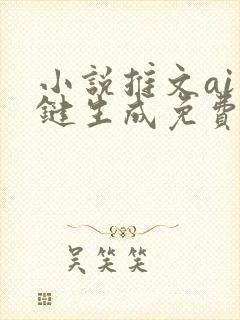 小說推文ai
鍵生成免費
吴笑笑